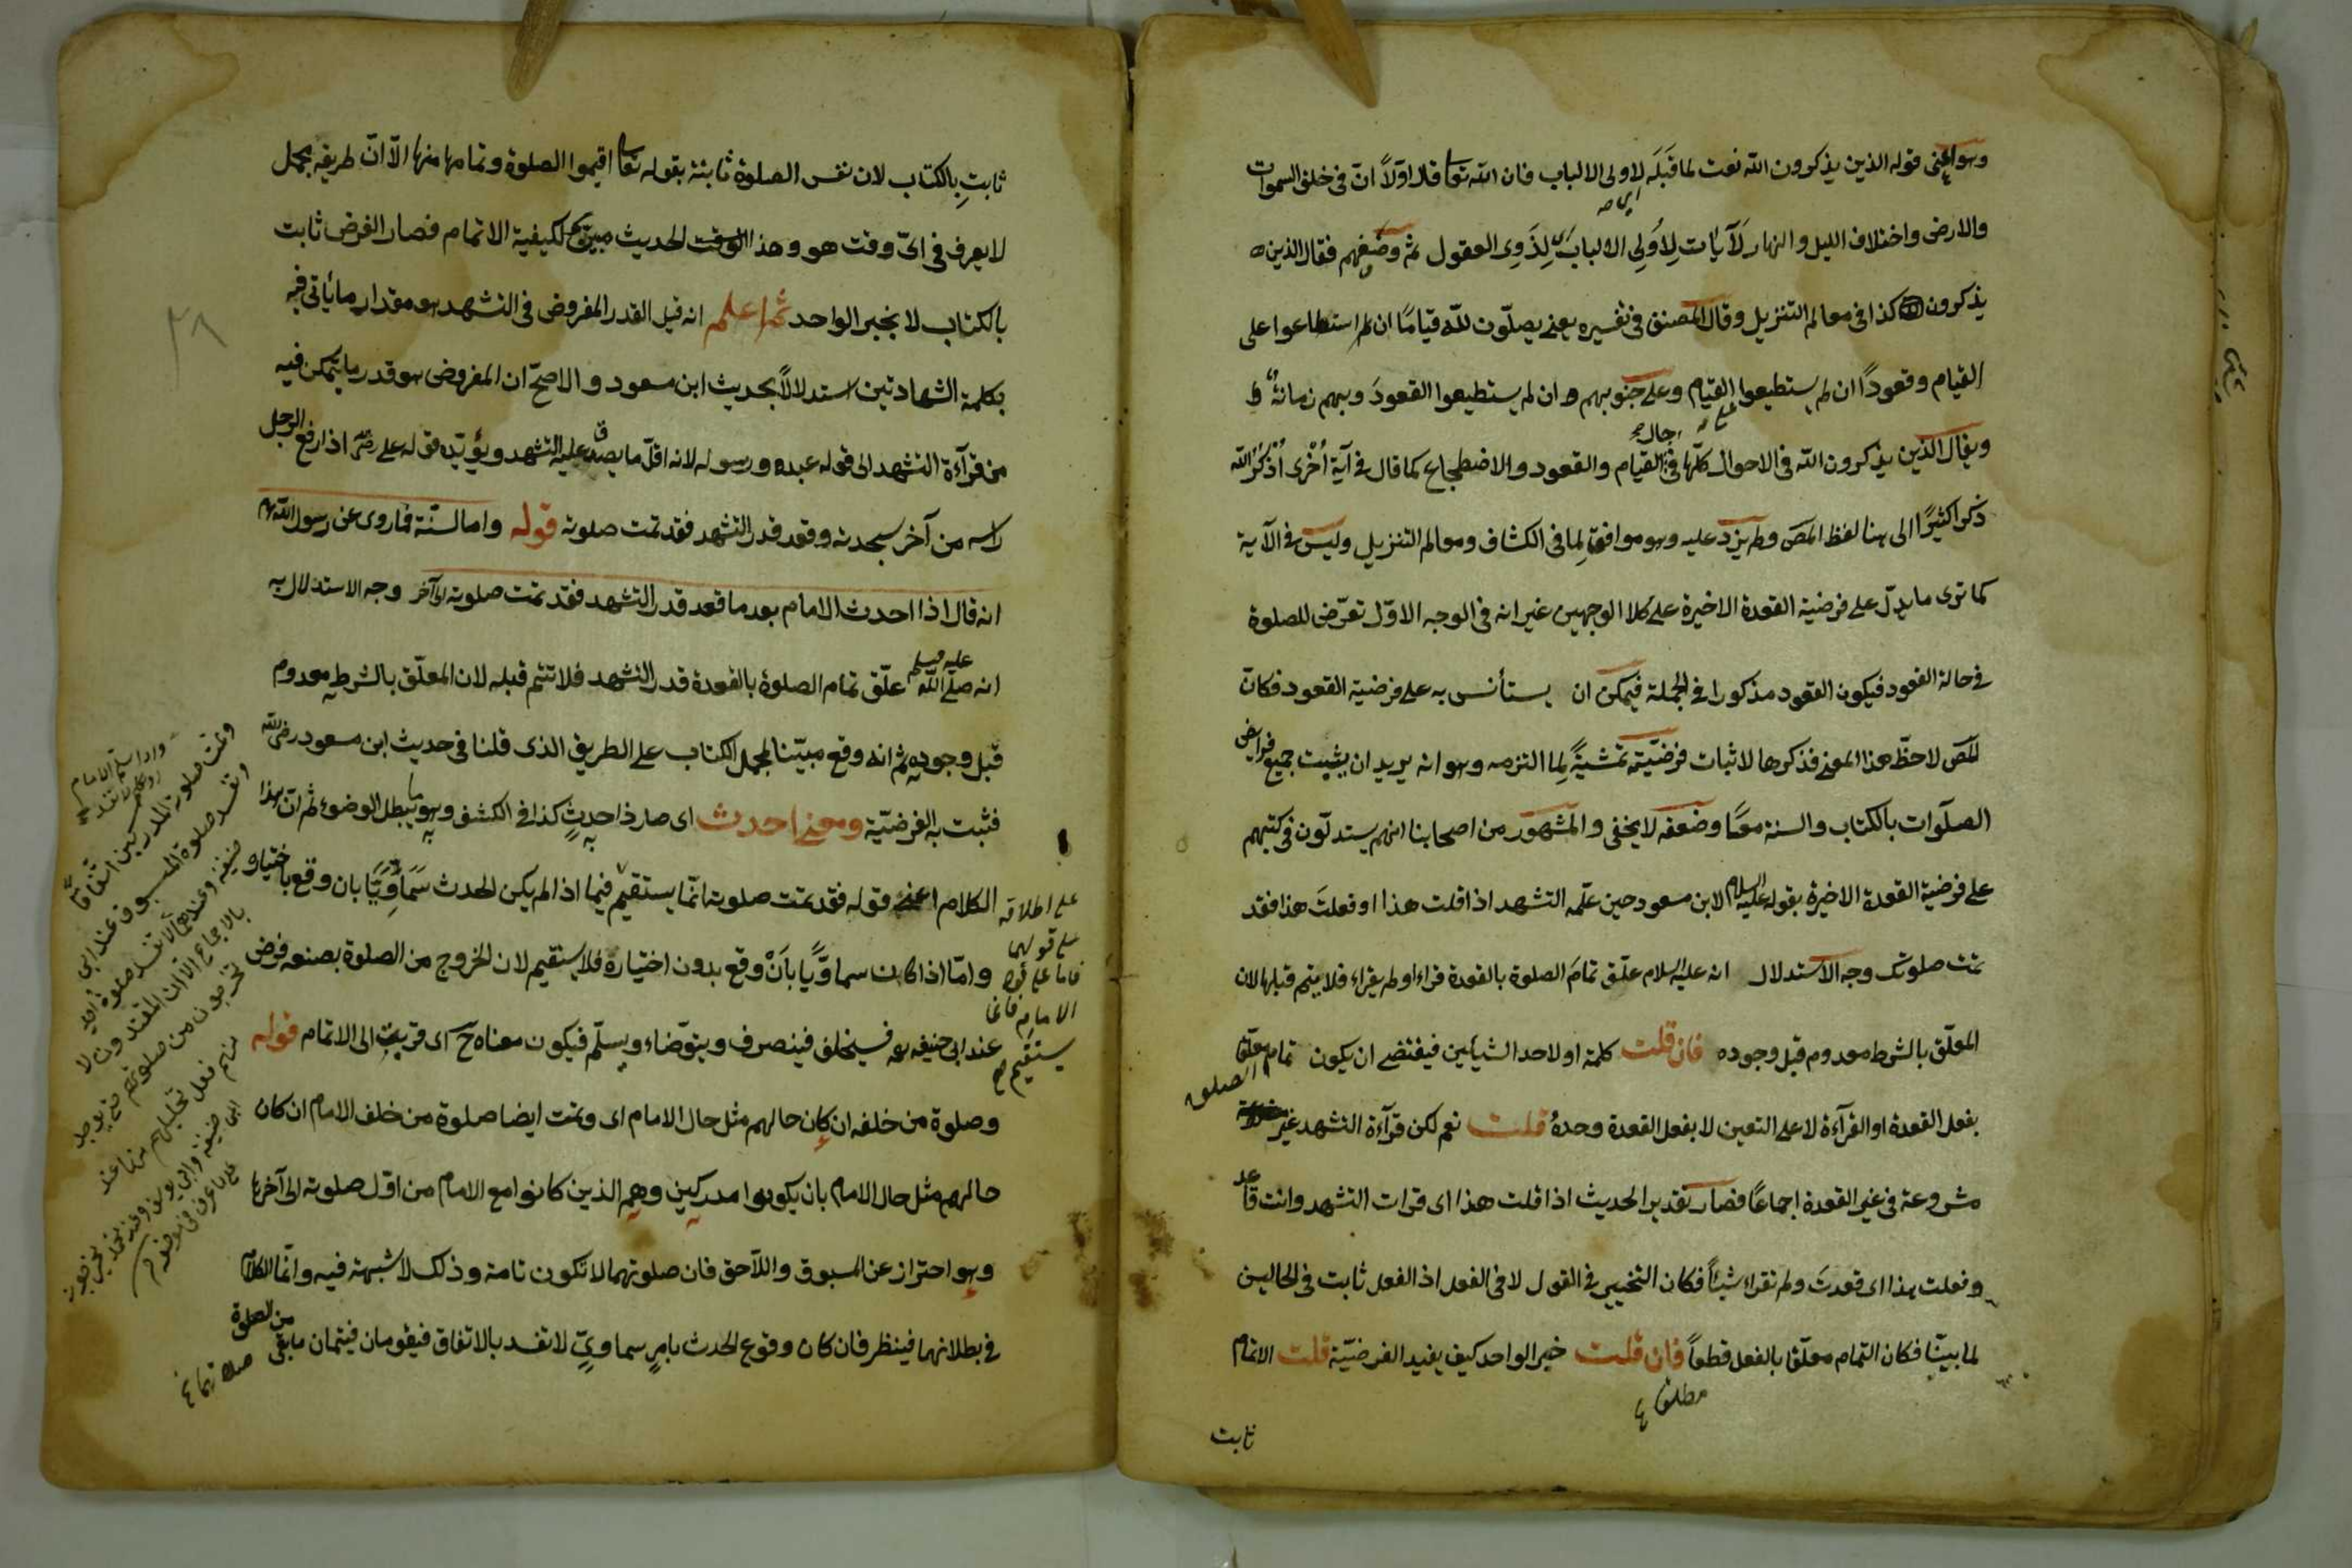 وهو اعنى قوله الذين يذكرون الله نعت لما قبله لاولى الالباب فان الله تعا قال اولاً انّ فى خلق السموات
والارض واختلاف الليل والنهار لَآيات لِاُولِى الالباب اى لِذَوِى العقول ثم وصفهم فقال الذين
يذكرون كذا فى معالم التنزيل وقال المصنف فى تفسيره يعنى يصلّون للّه قيامًا ان استطاعوا على
القيام وقعودًا ان لم يستطيعوا القيام وعلى جنوبهم ان لم يستطيعوا القعودَ وبهم زمانةٌ
ويقال الذين يذكرون الله فى الاحوال كلّها فى حال القيام والقعود والاضطجاع كما قال فى آية اُخْرى اُذْكُرُ الله
ذكرا كثيرًا الى هنا لفظ المص ولم يزد عليه وهو موافق لِما فى الكشاف ومعالم التنزيل وليس فى الآية
كما ترى ما يدلّ على فرضية القعدة الاخيرة على كلا الوجهين غير انه فى الوجه الاوّل تعرّض للصلوة
فى حالة القعود فيكون القعود مذكورا فى الجملة فيمكن ان يستأنس به على فرضية القعود فكانّ
المص لاحظّ هذا المعنى فذكرها لاثبات فرضيّته تمشيةً لِما التزمه وهو انه يريد ان يثبت جميع فرائض
الصلوات بالكتاب والسنة معًا وضعفه لا يخفى والمشهور من اصحابنا انهم يستدلّون فى كتبهم
على فرضية القعدة الاخيرة بقوله عليه السلام لابن مسعود حين علّمه التشهد اذا قلت هذا او فعلتَ هذا فقد
تمت صلوتك وجه الاستدلال انه عليه السلام علّق تمامَ الصلوة بالقعدة قراء او لم يقراء فلا يتم قبلها لان
المعلّق بالشرط معدوم قبل وجوده فان قلت كلمة او لاحد الشيئين فيقتضى ان يكون تمام الصلوة معلّقا
بفعل القعدة او القرآءة لا على التعين لا بفعل القعدة وحدهُ قلت نعم لكن قرآءة التشهد غير
مشروعة فى غير القعدة اجماعًا فصار تقدير الحديث اذا قلت هذا اى قرات التشهد وانت قاعد
وفعلت هذا اى قعدتَ ولم تقراء شيئاً فكان التخيير فى القول لا فى الفعل اذ الفعل ثابت فى الحالين
لما بيّنا فكان التمام معلّقا بالفعل قطعاً فان قلت خبر الواحد كيف يفيد الفرضيّة قلت الاتمام
مطلقا
ثابت
ثابتِ بالكتاب لان نفس الصلوة ثابتة بقوله تعا اقيموا الصلوة وتمامها منها الّا انّ طريقه مجمل
لا يعرف فى اىّ وقت هو وهذا الوقت الحديث مبيّن لكيفية الاتمام فصار الفرض ثابت
بالكتاب لا بخبر الواحد ثم اعلم انه قيل القدر المفروض فى التشهد هو مقدار ما يأتى فيه
بكلمة الشهادتين استدلالاً بحديث ابن مسعود والاصحّ ان المفروض هو قدر ما يتمكن فيه
من قرآءة التشهد الى قوله عبده ورسوله لانه اقلّ ما يصدق عليه التشهد ويؤيّده قوله على رض اذا رفع الرجل
راسه من آخر سجدته وقعد قدر التشهد فقد تمت صلوته قوله واما السنّة فما روى عن رسول الله
انه قال اذا احدث الامام بعد ما قعد قدر التشهد فقد تمت صلوته الى آخر وجه الاستدلال به
انه صلّى اللّه عليه وسلم علّق تمام الصلوة بالقعدة قدر التشهد فلا تتم قبله لان المعلّق بالشرط معدوم
قبل وجوده ثم انه وقع مبيّنا لمجمل الكتاب على الطريق الذى قلنا فى حديث ابن مسعود رضى الله
فثبت به الفرضيّة ومعنى احدث اى صار ذا حدثٍ كذا فى الكشف وهو ما يبطل الوضوء ثم انّ هذا
الكلام اعنى قوله فقد تمت صلوته انّما يستقيم فيما اذا لم يكن الحدث سَمَاوِيًّا بان وقع باختياره
وامّا اذا كان سماويًّا بأنْ وقع بدون اختياره فلا يستقيم لان الخروج من الصلوة بصنعه فرض
عند ابى حنيفه رحمه فيستخلف فينصرف ويتوضّاء ويسلّم فيكون معناه ح اى قريب الى الاتمام قوله
وصلوة من خلفه ان كان حالهم مثل حال الامام اى وتمت ايضا صلوة من خلف الامام ان كان
حالهم مثل حال الامام بان يكونوا مدركين وهم الذين كانوا مع الامام من اوّل صلوته الى آخرها
وهو احتراز عن المسبوق واللآحق فان صلوتهما لا تكون تامة وذلك لا شبهة فيه وانّما الكلام
فى بطلانهما فينظر فان كان وقوع الحدث بامرٍ سماوىّ لا تفسد بالاتفاق فيقومان فيتمان ما بقى من الصلوة
على اطلاقه
على قولهما
فاما على قول
الامام فانما
يستقيم
وتمت صلوة المدركين اتفاقًا
وتفسد صلوة المسبوق عند ابى
حنيفه وعندهما لا تفسد صلوة
بالاجماع الا ان المقتدون لا
٣٨